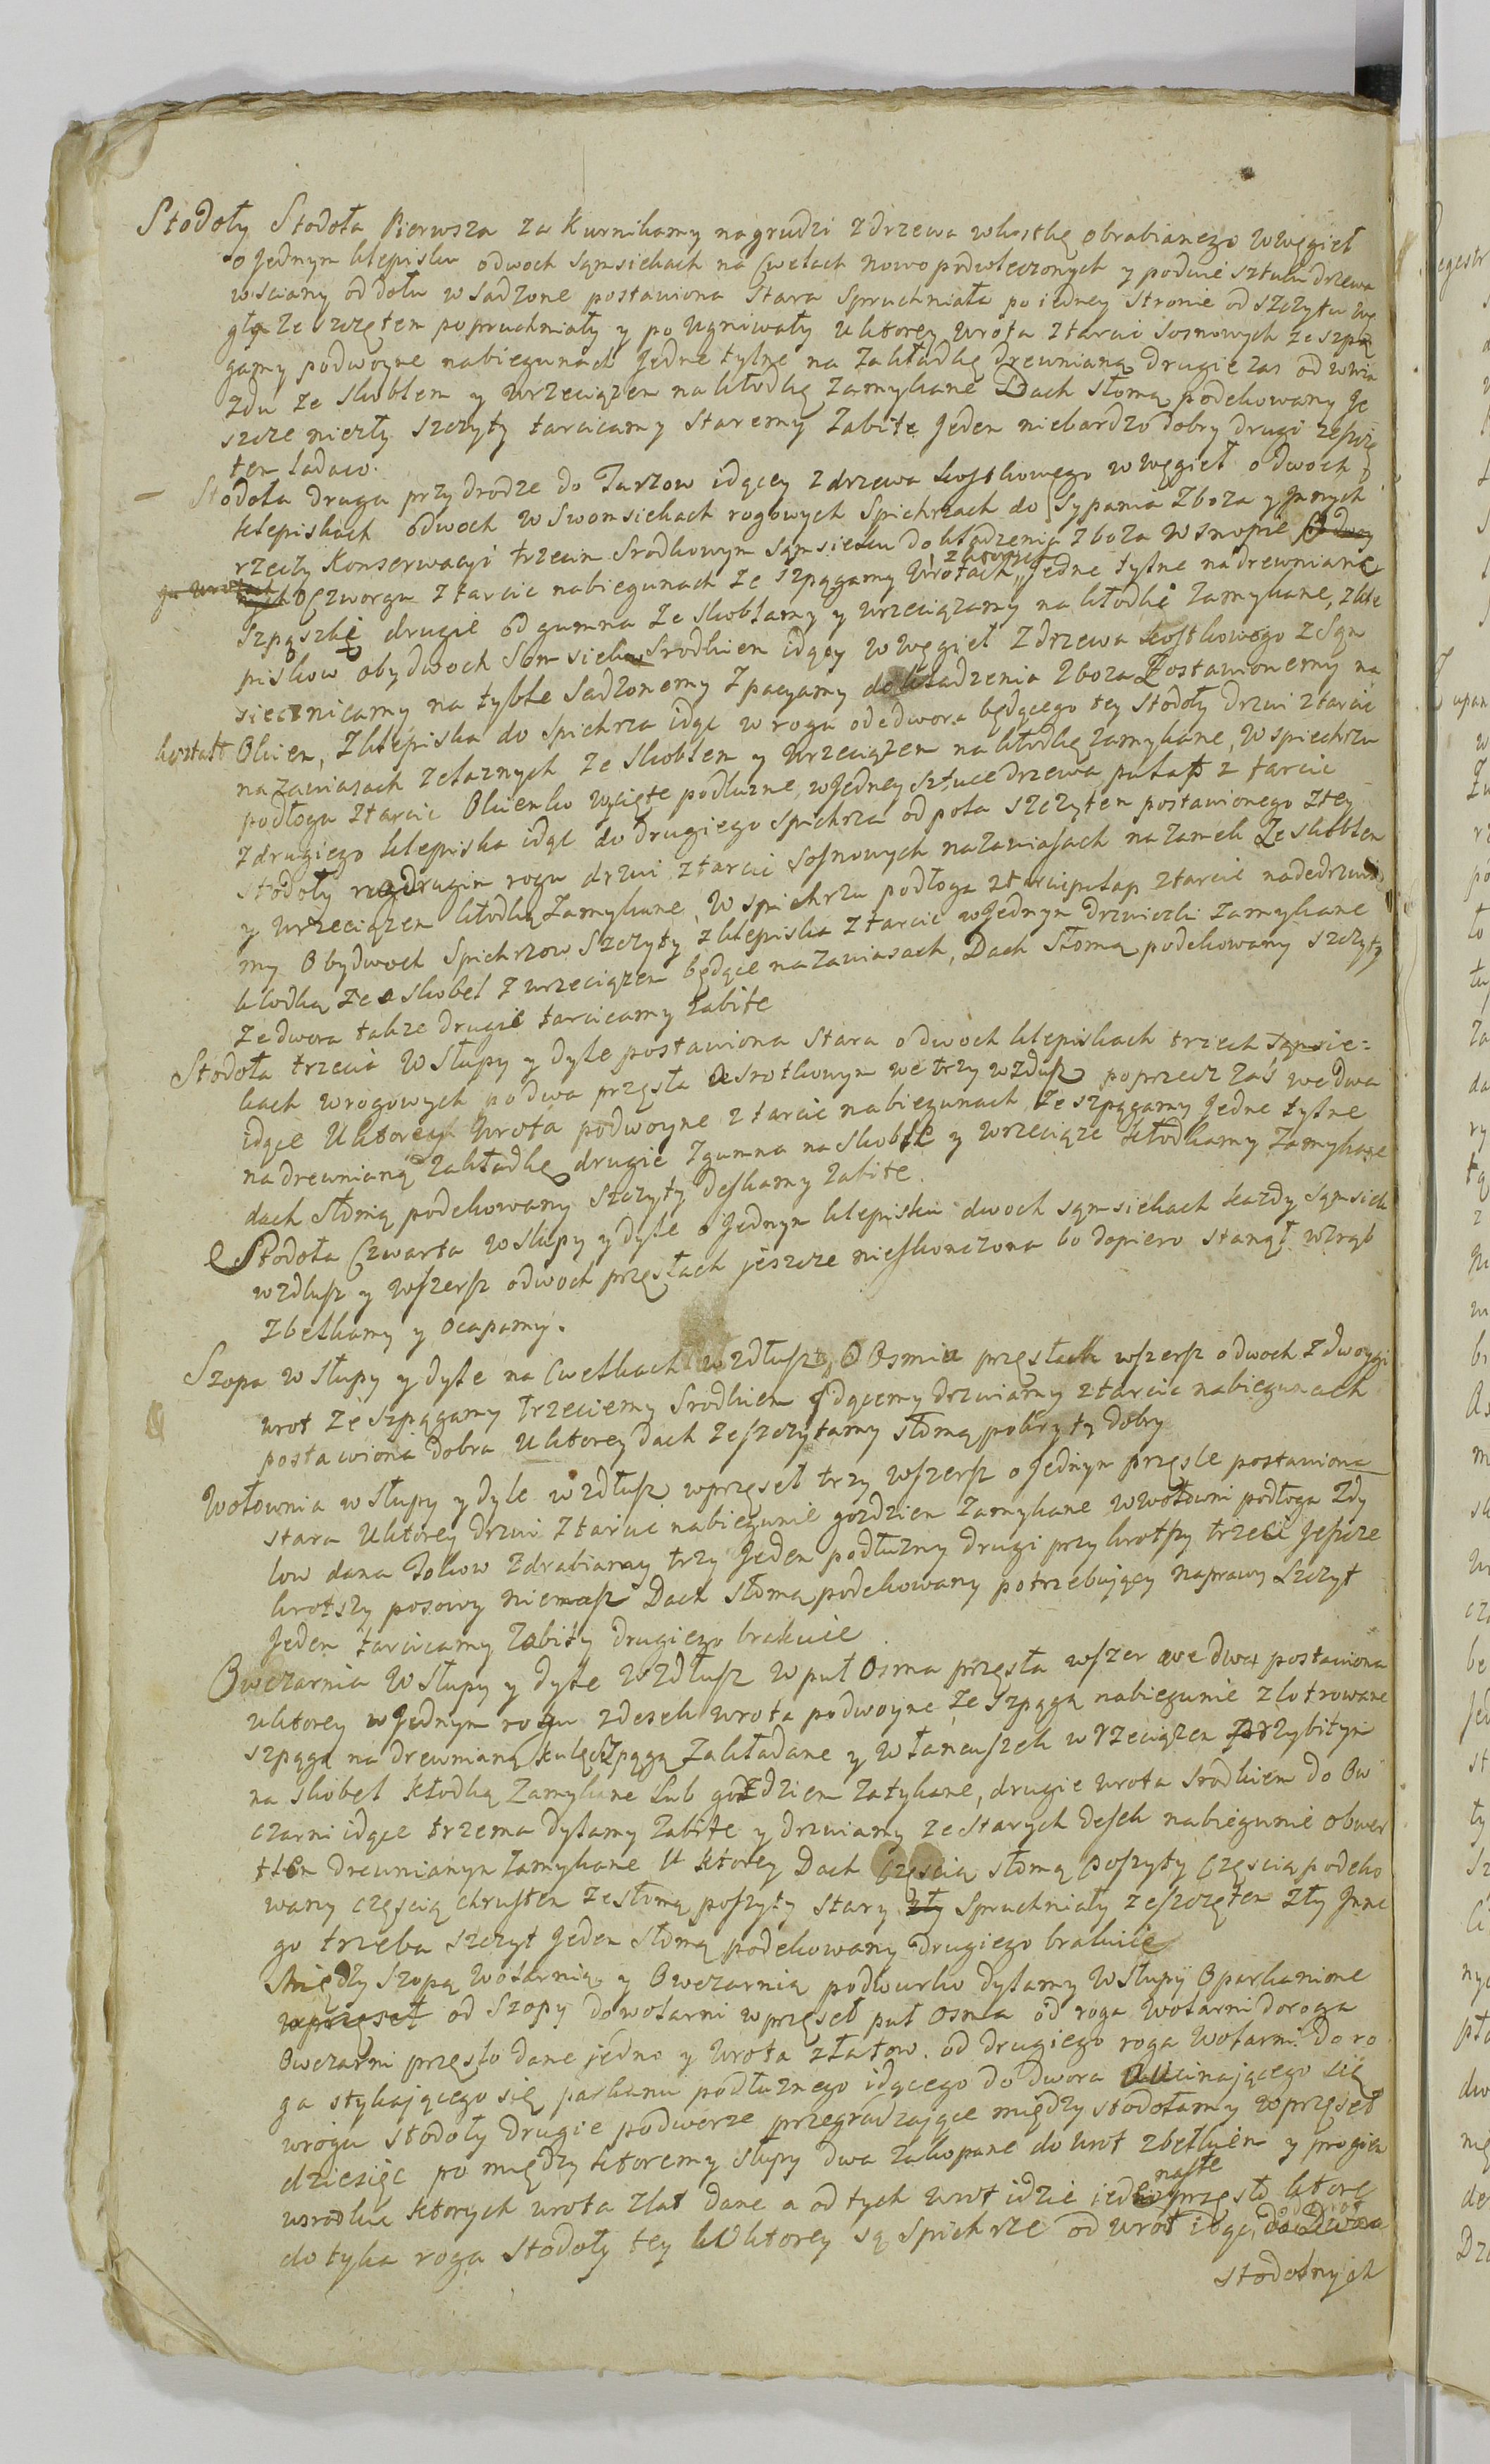 Stodoły Stodoła Pierwsza za Kurnikamy na grudzi z drzewa wkostkę obrabianego w węgieł
o Jednym klepisku o dwoch sąmsiekach na Cwelach nowo podwleczonych y podwie sztuki drzewa
wsciany od dołu wsadzone postawiona stara spruchniała po iedney stronie od szczytu wę
gły ze wszętem popruchniały y po ugniwały u ktorey wrota z tarcic sosnowych ze szpą
gamy podwoyne na biegunach Jedne tylne na zakładkę drewnianą drugie zas od wwia
zdu ze skoblem y wrzeciązem na kłodkę zamykane Dach słomą podekowany Je
szcze niezły szczyty tarcicamy staremy zabite Jeden niebardzo dobry drugi zeszczę
tem ladaco.
– Stodoła druga przy drodze do Turzow idącey z drzewa kostkowego w węgieł o dwoch
klepiskach o dwoch w Swomsiekach rogowych Spichrzach do Sypania Zboza y Jnnych
rzeczy Konserwacyi trzecim Srodkowym sąmsieku do kładzenia zboza w snopie
o Czworgu z tarcic na biegunach ze szpągamy wrotach z ktorych Jedne tylne na drewnianą
szpąszkę drugie od gumna ze skoblamy y wrzeciązamy na kłodkę zamykane, z kle
piskow obydwoch Somsiekow Srodkiem idący w węgieł z drzewa kostkowego z Sąm
siecznicamy na tyble sadzonemy z pacyamy do kładzenia zboza zostawionemy na
kształt Okien, z klepiska do spichrza idąc w rogu ode dwora będącego tey stodoły drzwi z tarcic
na zawiasach zelaznych ze skoblem y wrzeciązem na kłodkę zamykane, w spiechrzu
podłoga z tarcic Okienko wycięte podłuzne, w Jedney sztuce drzewa pułap z tarcic
z drugiego klepiska idąc do drugiego spichrza od pola szczytem postawionego z tey
stodoły na drugim rogu drzwi z tarcic Sosnowych na zawiasach na zamek ze skoblem
y wrzeciązem kłodką zamykane, w spichrzu podłoga z tarcic pułap z tarcic nadedrzwia
my Obydwoch Spichrzow Szczyty z klepiska z tarcic w Jednym drzwiczki zamykane
kłodką ze skobel z wrzeciązem będące na zawiasach, Dach słomą podekowany szczyty
ze dwora takze drugie tarcicamy zabite
Stodoła trzecia w słupy y dyle postawiona stara o dwoch klepiskach trzech sąmsie=
kach w rogowych po dwa przęsła w srotkowym we trzy wzdusz poprzecz zaś we dwa
idące U ktorey wrota podwoyne z tarcic na biegunach ze szpągamy Jedne tylne
na drewnianą zakładkę drugie z gumna na skoble y wrzeciąze kłodkamy zamykane
dach słomą podekowany szczyty deskamy zabite.
Stodoła Czwarta w słupy y dyle o Jednym klepisku dwoch sąmsiekach kazdy sąmsiek
wzdłusz y wszersz o dwoch przęsłach jeszcze nieskonczona bo dopiero stanął wzrąb
z belkamy y ocapamy.
Szopa w słupy y dyle na Cwelkach wzdłusz, O Osmiu przęsłach wszersz o dwoch z dwoygi
wrot ze szpągamy trzeciemy Srodkiem Jdącemy drzwiamy z tarcic na biegunach
postawiona dobra u ktorey dach zeszczytamy słomą pokryty dobry
Wołownia w słupy y dyle wzdłusz w przęseł trzy wszersz o Jednym przęsle postawiona
stara u ktorey drzwi z tarcic na biegunie gozdziem zamykane w wołowni podłoga z dy
low dana Tołow z drabiamy trzy Jeden podłuzny drugi przy krotszy trzeci Jeszcze
krotszy posowy niemasz Dach słomą podekowany potrzebujący naprawy Szczyt
Jeden tarcicamy zabity drugiego brakuie
Owczarnia w słupy y dyle wzdłusz w puł Osma przęsła wszer we dwa postawiona
u ktorey w Jednym rogu z desek wrota podwoyne ze szpągą na biegunie z lotrowane
szpągą na drewnianą kulę Szpągą zakładane y włancuszek wrzeciązem przybitym
na skobel kłodką zamykane lub gozdziem zatykane, drugie wrota srodkiem do Ow
czarni idące trzema dylamy zabite y drzwiamy ze starych desek na biegunie obwer
tlem drewnianym zamykane U ktorey Dach Częscią słomą poszyty Częscią podeko
wany częscią chrustem ze słomą poszyty stary spruchniały zeszczętem zły Jnne
go trzeba szczyt Jeden słomą podekowany drugiego brakuie
Między szopą wołarnią y Owczarnią podwurko dylamy w słupy Oparkanione
od Szopy do wołarni w przęseł puł osma od roga wołarni do roga
Owczarni przęsło dane jedno y wrota z łatow. od drugiego roga wołarni do ro
ga stykającego się parkanu podłuznego idącego do dwora ucinającego się
w rogu stodoły drugie podworze przegradzające między stodołamy w przęseł
dziesięc po między ktoremy słupy dwa zakopane do wrot z belkiem y progiem
wsrodku ktorych wrota z łat dane a od tych wrot idzie iedenaste przęsło ktore
do tyka roga stodoły tey w ktorey są Spichrze od wrot idąc
stodolnych